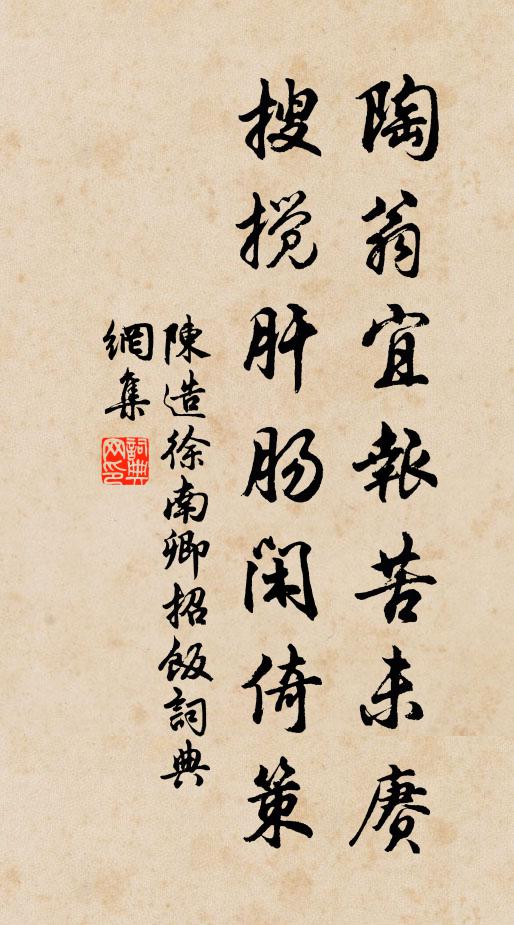 陶翁宜報苦未賡
搜攪肝腸閑倚策
陳造徐南卿招飯詞典
網集
詞典
网印